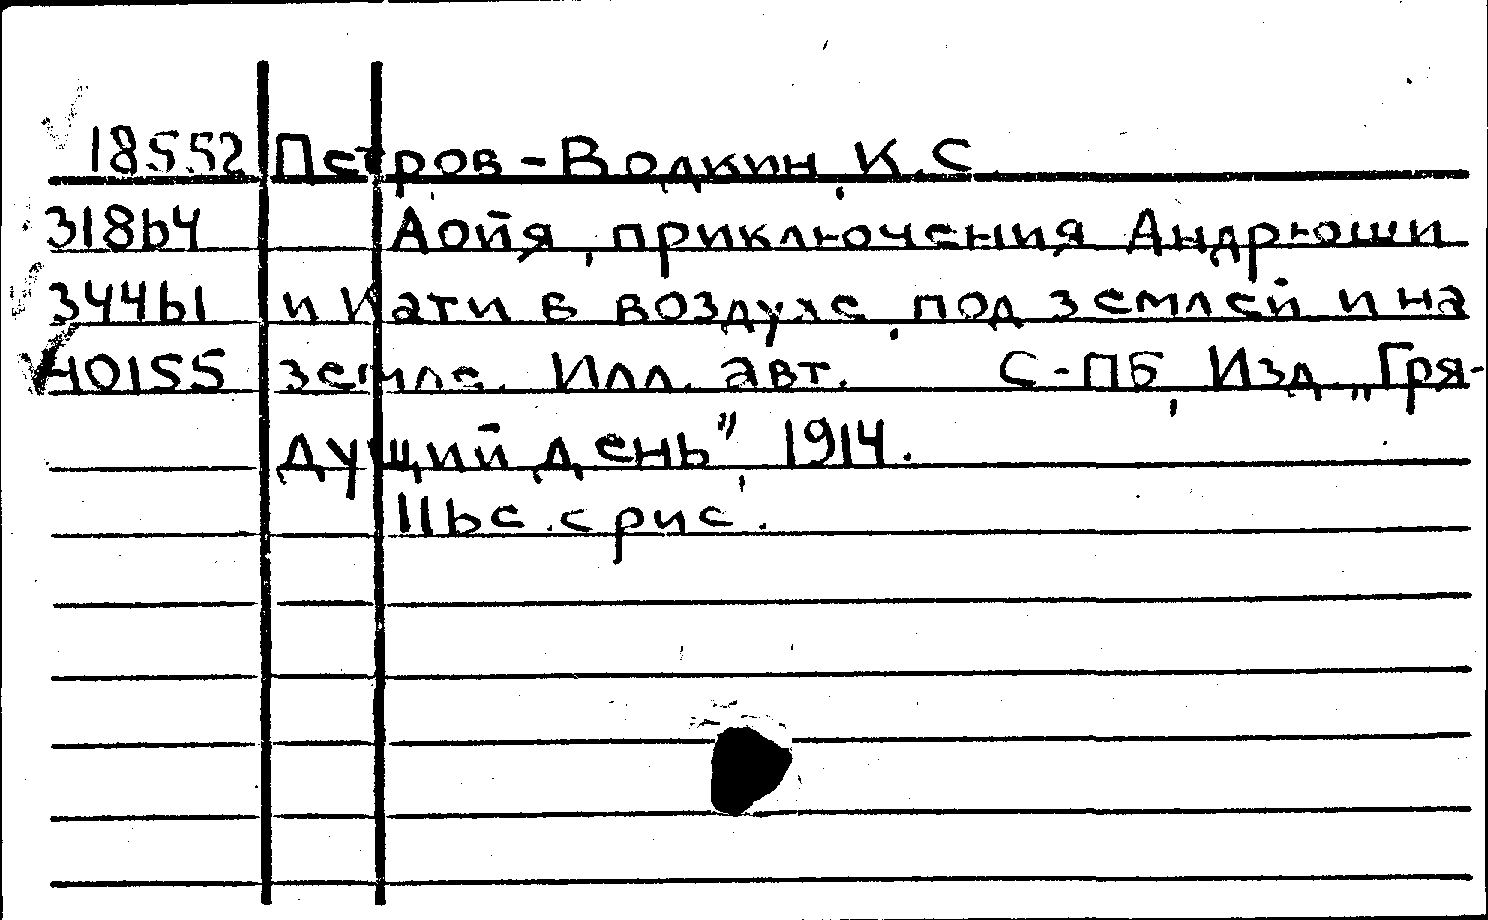 18552 Петров-Водкин, К.С.
31864 Аойя, приключения Андрюши
34461 и Кати в воздухе, под землей и на
40155 земле. Илл. авт. С-ПБ, Изд. „Гря-
дущий день", 1914.
116 с. с рис.